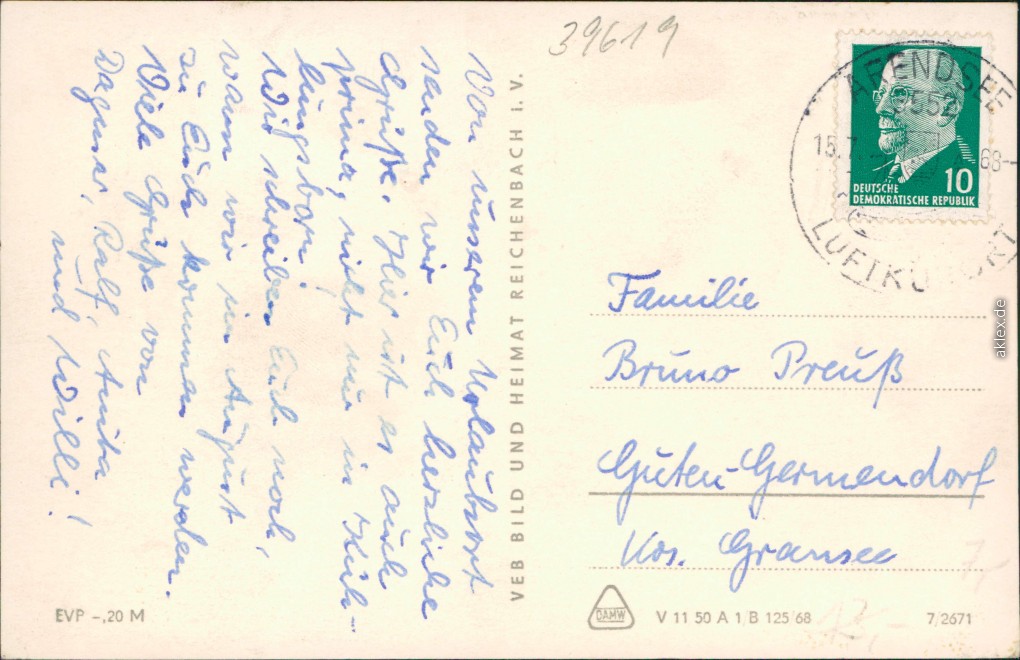 39619
Von unserem Urlaubsort
senden wir Euch herzliche
Grüße. Hier ist es auch
prima, nicht nur in Küh-
lungsborn!
Wir schreiben Euch noch,
wann wir im August
zu Euch kommen werden.
Viele Grüße von
Dagmar, Ralf, Anita
und Willi!
VEB BILD UND HEIMAT REICHENBACH I. V.
ARENDSEE
3552
15.7.
68–
LUFTKURORT
10
DEUTSCHE
DEMOKRATISCHE REPUBLIK
Familie
Bruno Preuß
Guten-Germendorf
Krs. Gransee
7,-
12,-
EVP –,20 M
DAMW
V 11 50 A 1 B 125 68
7/2671
aklex.de